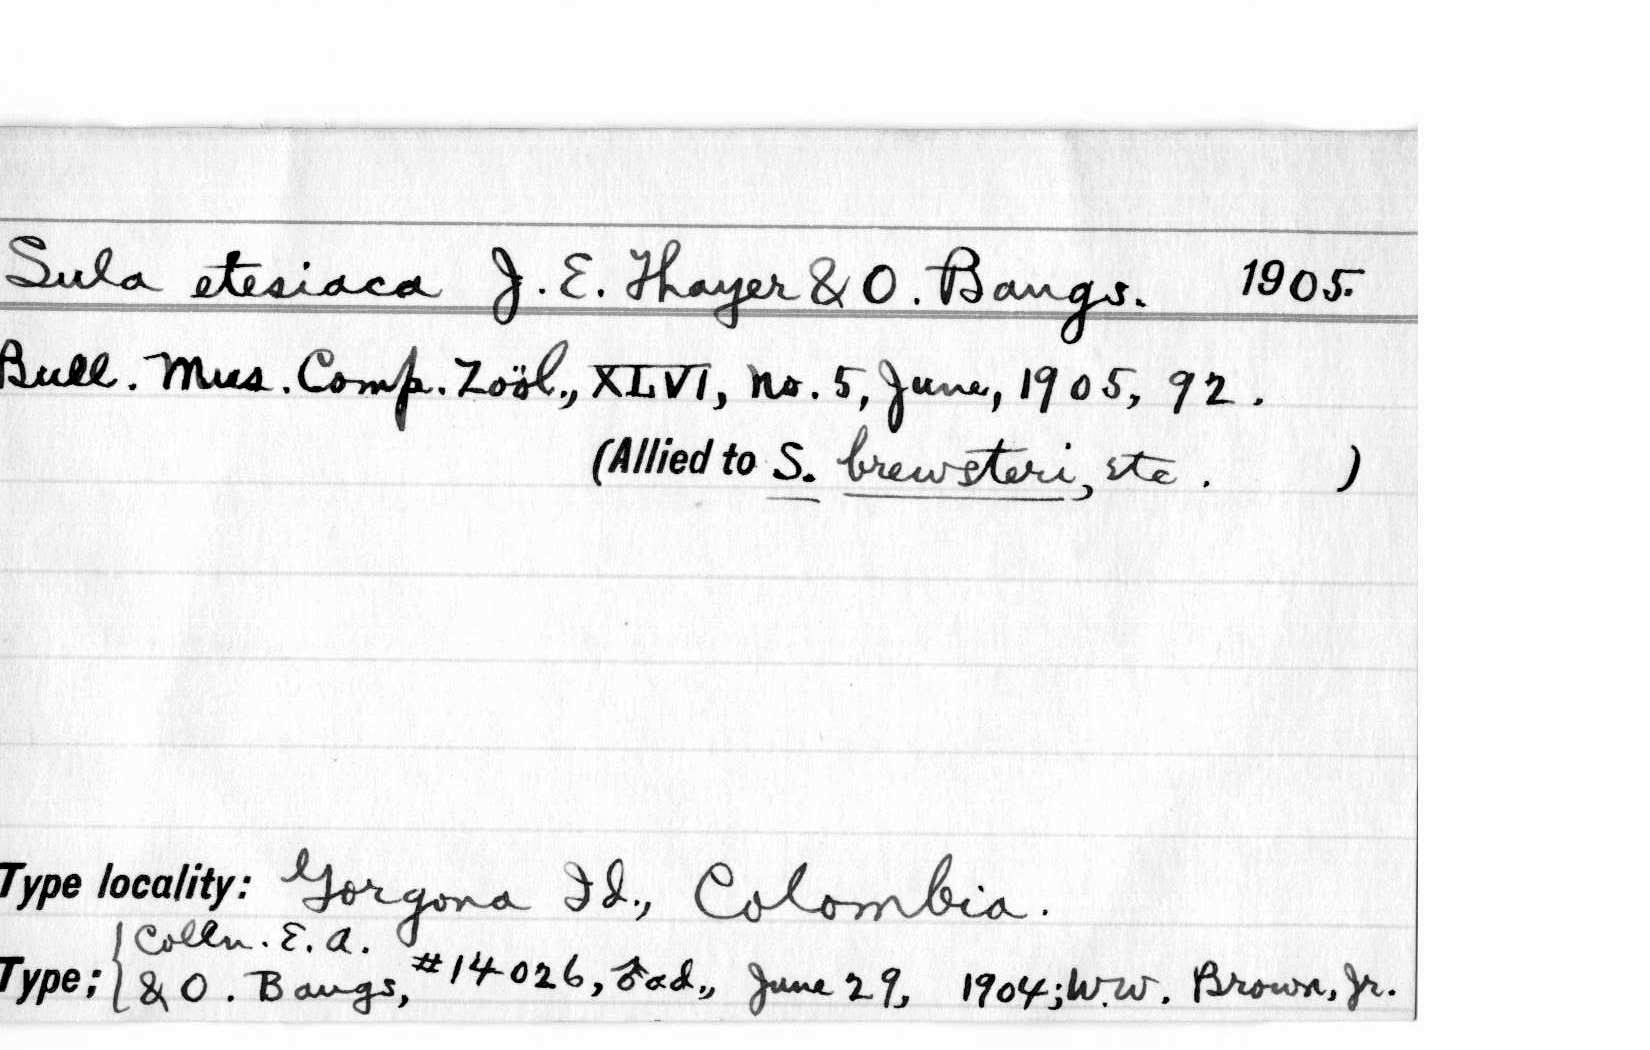 Sula etesiaca J. E. Thayer & O. Bangs. 1905.
Bull. Mus. Comp. Zoöl., XLVI, no. 5, June, 1905, 92.
(Allied to S. brewsteri, etc. )
Type locality: Gorgona Id., Colombia.
Colln. E. A.
Type; & O. Bangs, #14026, ♂ ad., June 29, 1904; W. W. Brown, Jr.